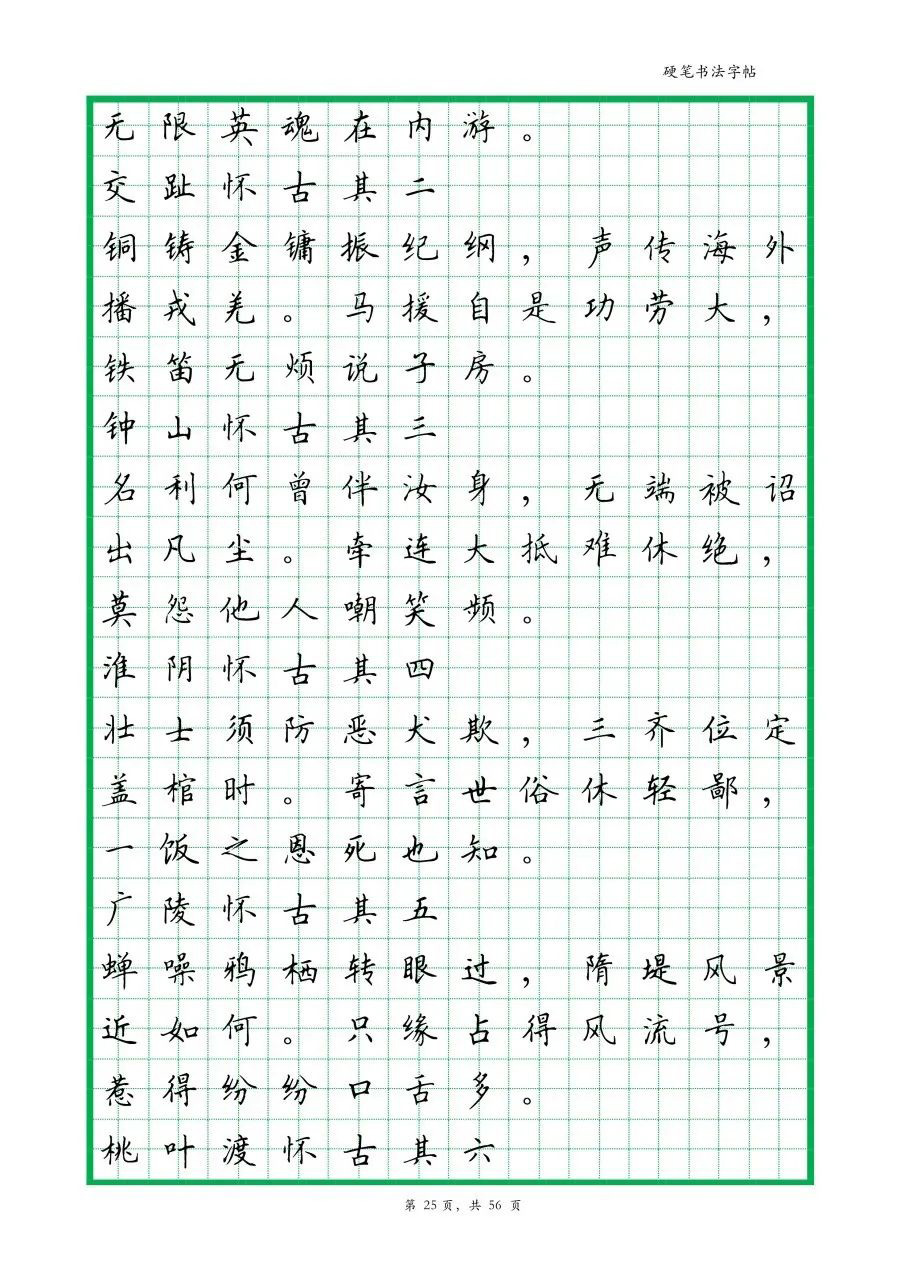 硬笔书法字帖
无限英魂在内游。
交趾怀古其二
铜铸金镛振纪纲，声传海外
播戎羌。马援自是功劳大，
铁笛无烦说子房。
钟山怀古其三
名利何曾伴汝身，无端被诏
出凡尘。牵连大抵难休绝，
莫怨他人嘲笑频。
淮阴怀古其四
壮士须防恶犬欺，三齐位定
盖棺时。寄言世俗休轻鄙，
一饭之恩死也知。
广陵怀古其五
蝉噪鸦栖转眼过，隋堤风景
近如何。只缘占得风流号，
惹得纷纷口舌多。
桃叶渡怀古其六
第 25 页，共 56 页